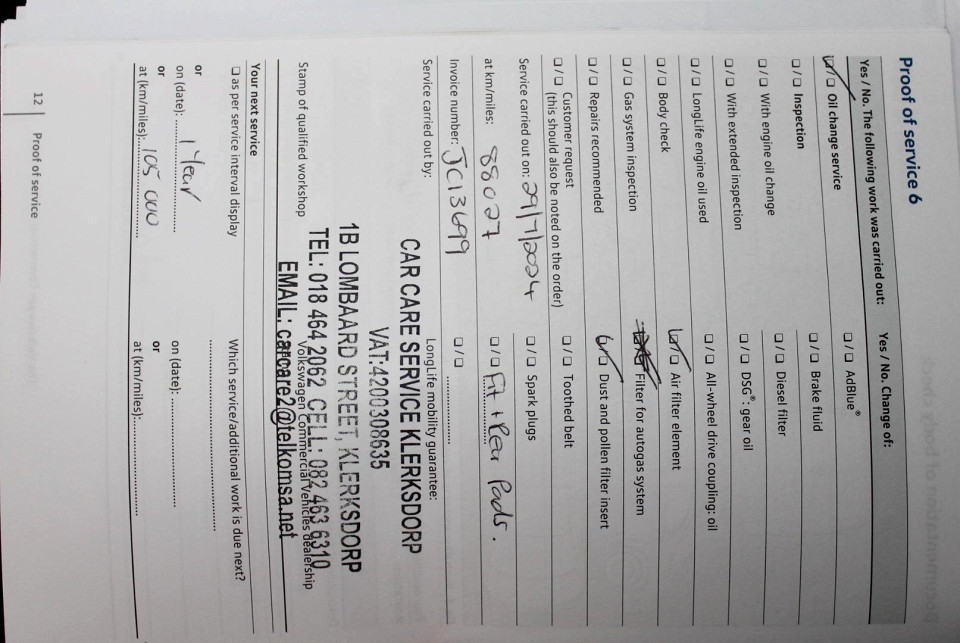 Proof of service 6
Yes / No. The following work was carried out:
☑/☐ Oil change service
☐/☐ Inspection
☐/☐ With engine oil change
☐/☐ With extended inspection
☐/☐ LongLife engine oil used
☐/☐ Body check
☐/☐ Gas system inspection
☐/☐ Repairs recommended
☐/☐ Customer request
(this should also be noted on the order)
Service carried out on: 29/7/2024
at km/miles: 88027
Invoice number: JC13699
Service carried out by:
Yes / No. Change of:
☐/☐ AdBlue®
☐/☐ Brake fluid
☐/☐ Diesel filter
☐/☐ DSG®: gear oil
☐/☐ All-wheel drive coupling: oil
☑/☐ Air filter element
Filter for autogas system
☑/☐ Dust and pollen filter insert
☐/☐ Toothed belt
☐/☐ Spark plugs
☐/☐ Frt + Rear Pads.
☐/☐ ....................
LongLife mobility guarantee:
CAR CARE SERVICE KLERKSDORP
VAT:4200308635
1B LOMBAARD STREET, KLERKSDORP
TEL: 018 464 2062 CELL: 082 463 6310
EMAIL: carcare2@telkomsa.net
Stamp of qualified workshop
Volkswagen Commercial Vehicles dealership
Your next service
☐ as per service interval display
or
on (date): 1 Year
or
at (km/miles): 105 000
Which service/additional work is due next?
....................
on (date): ....................
or
at (km/miles): ....................
12 Proof of service